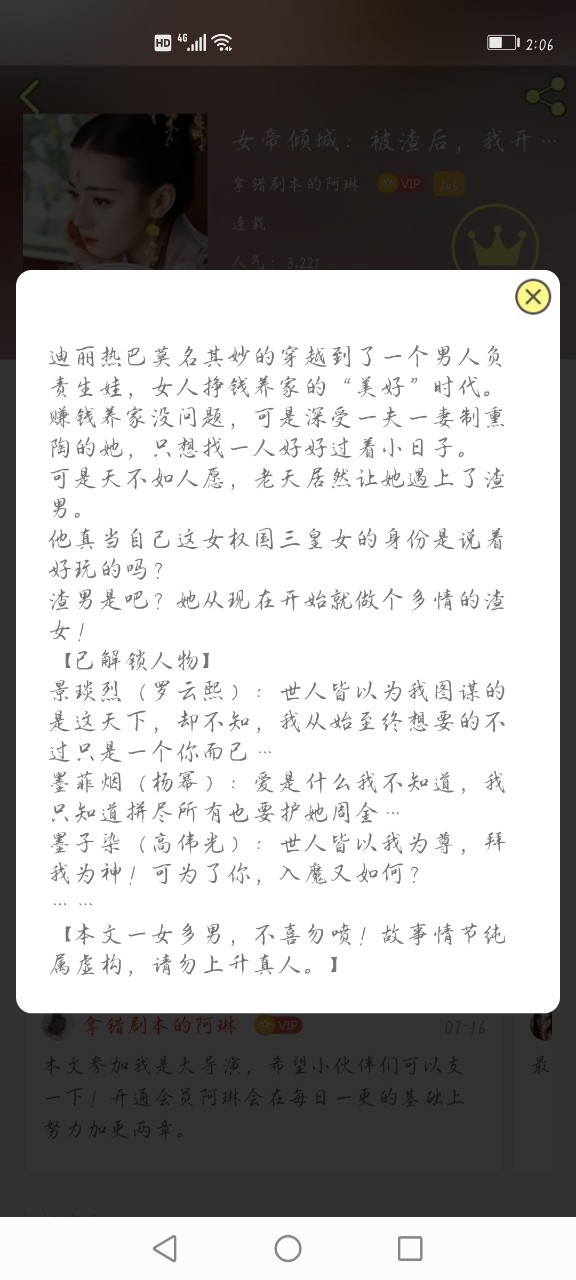 HD 4G 2:06
女帝倾城：被渣后，我开…
拿错剧本的阿琳 VIP Lv6
连载
人气：3,221
迪丽热巴莫名其妙的穿越到了一个男人负
责生娃，女人挣钱养家的“美好”时代。
赚钱养家没问题，可是深受一夫一妻制熏
陶的她，只想找一人好好过着小日子。
可是天不如人愿，老天居然让她遇上了渣
男。
他真当自己这女权国三皇女的身份是说着
好玩的吗？
渣男是吧？她从现在开始就做个多情的渣
女！
【已解锁人物】
景琰烈（罗云熙）：世人皆以为我图谋的
是这天下，却不知，我从始至终想要的不
过只是一个你而已…
墨菲烟（杨幂）：爱是什么我不知道，我
只知道拼尽所有也要护她周全…
墨子染（高伟光）：世人皆以我为尊，拜
我为神！可为了你，入魔又如何？
……
【本文一女多男，不喜勿喷！故事情节纯
属虚构，请勿上升真人。】
拿错剧本的阿琳 VIP 07-16
本文参加我是大导演，希望小伙伴们可以支 最
一下！开通会员阿琳会在每日一更的基础上
努力加更两章。